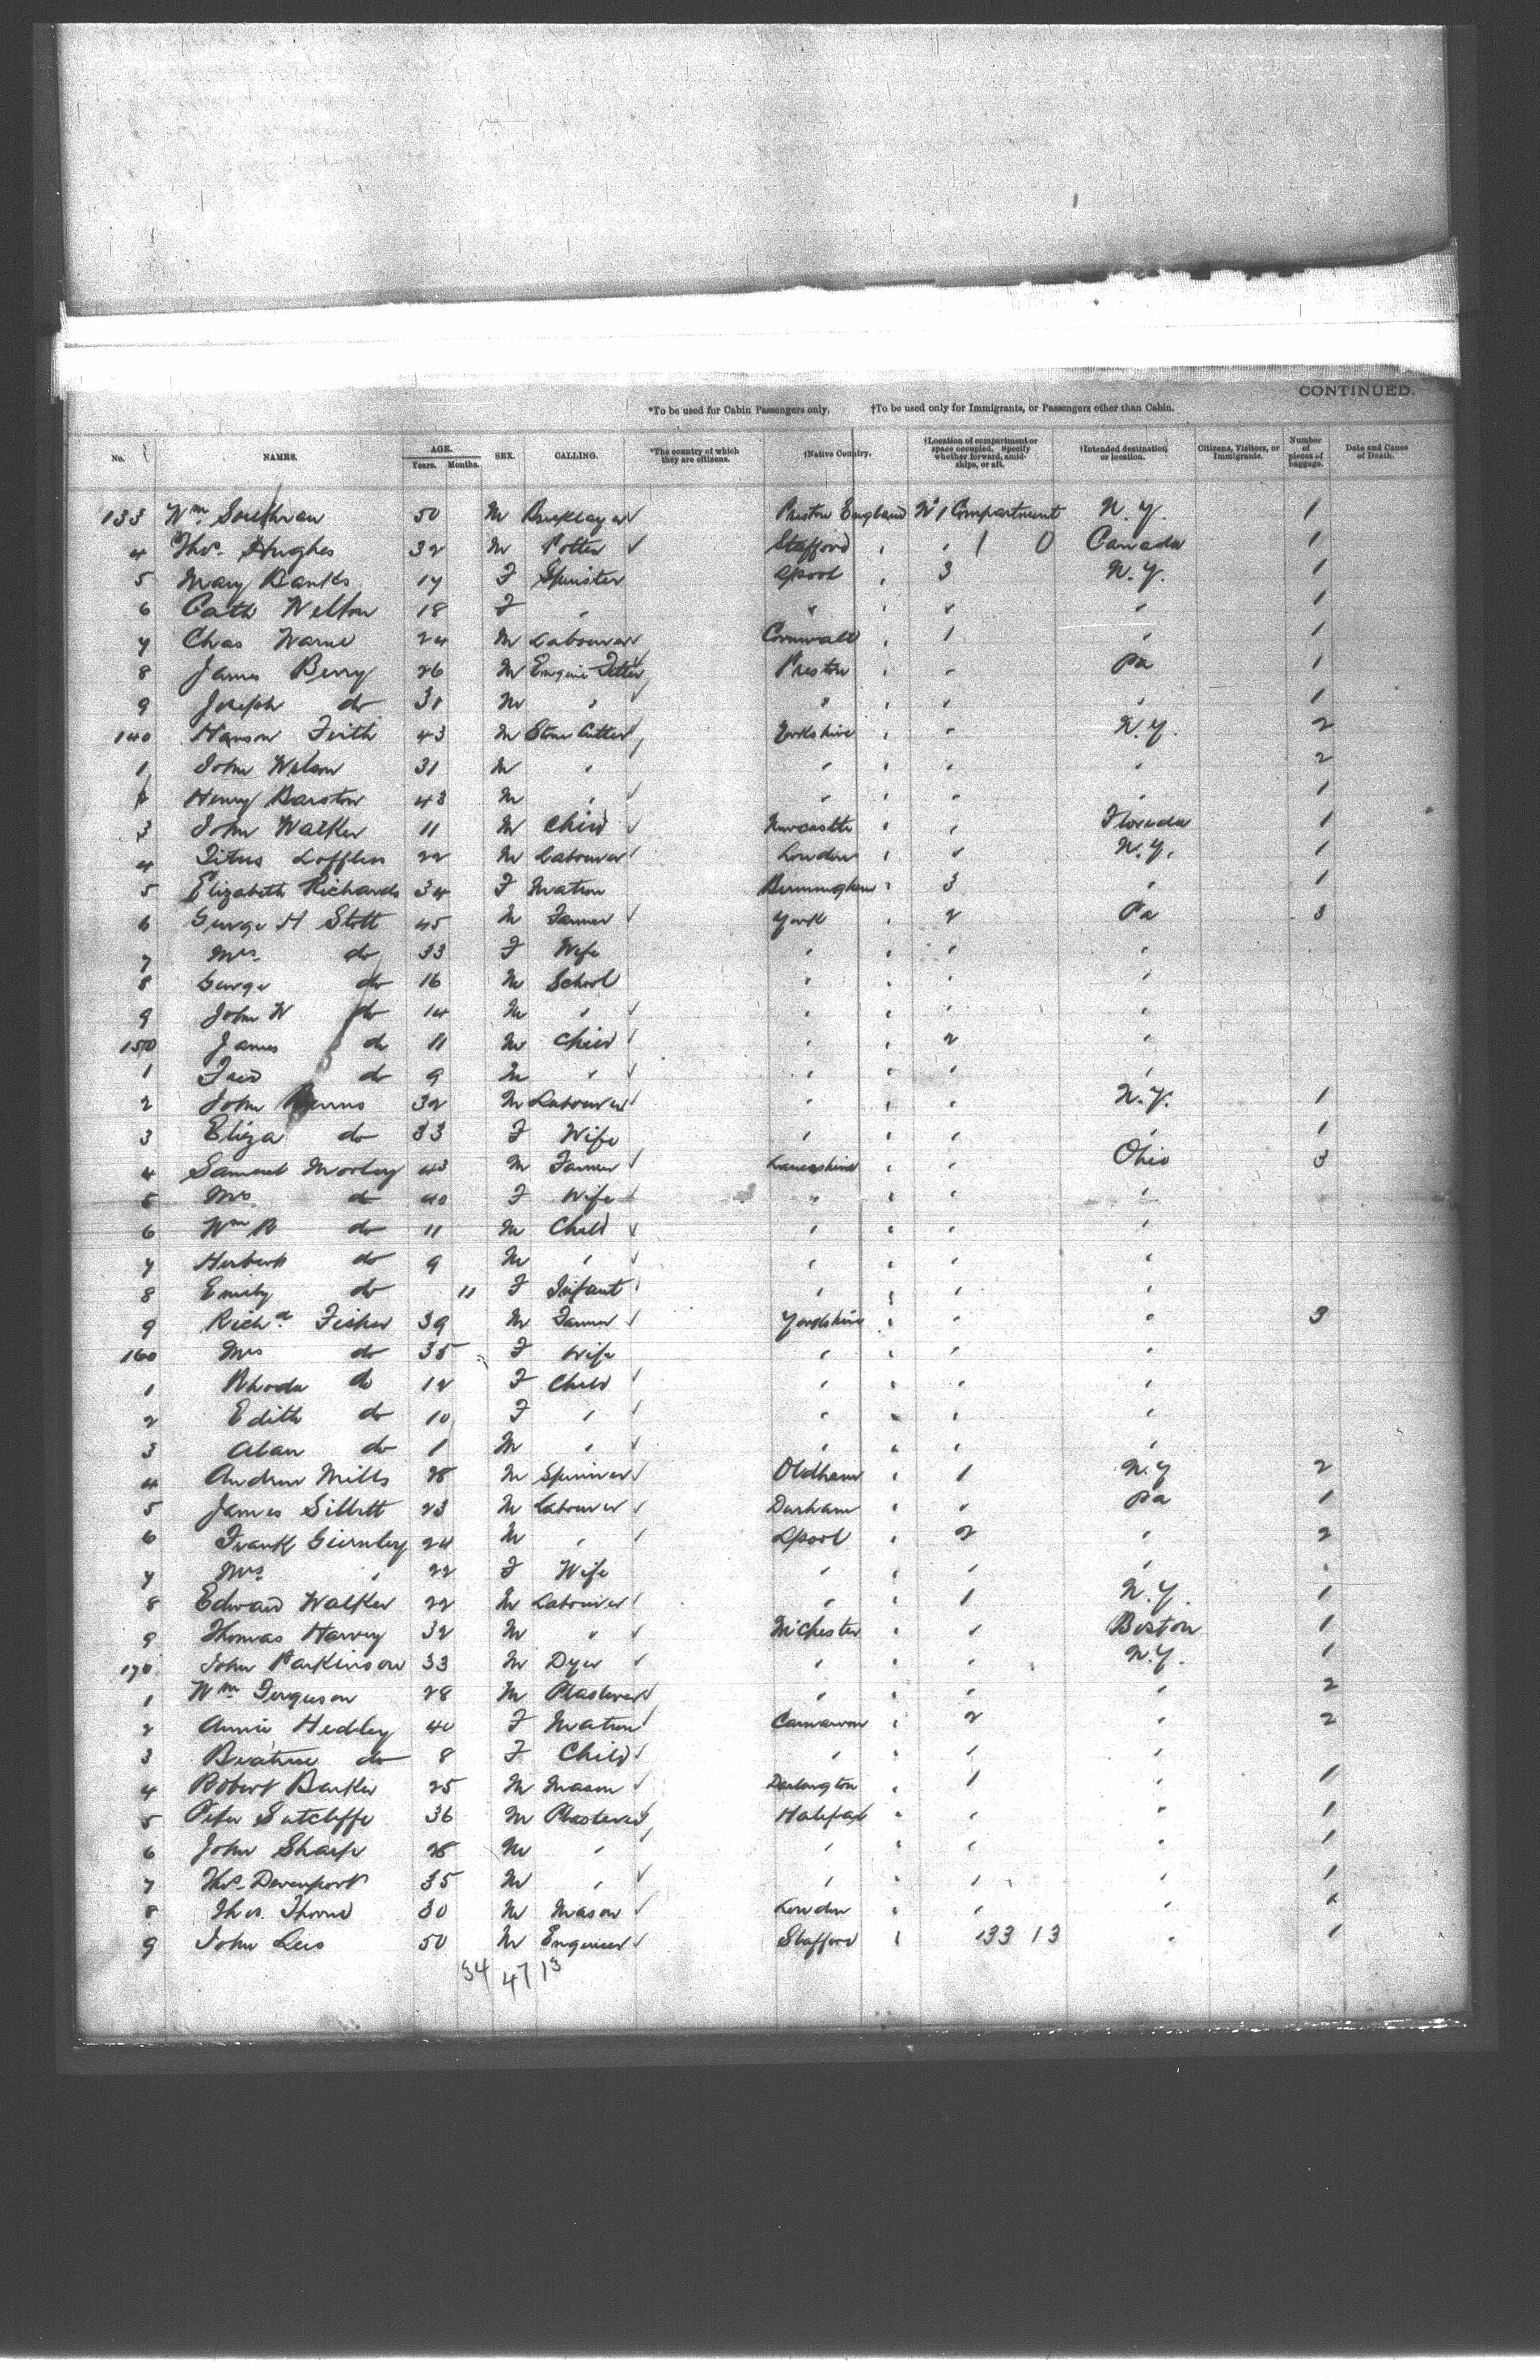 CONTINUED.
*To be used for Cabin Passengers only. †To be used only for Immigrants, or Passengers other than Cabin.
No. NAMES. AGE. Years. Months. SEX. CALLING. *The country of which they are citizens. †Native Country. †Location of compartment or space occupied. Specify whether forward, amidships, or aft. †Intended destination or location. Citizens, Visitors, or Immigrants. Number of pieces of baggage. Date and Cause of Death.
133 Wm 50 M Bricklayer Preston England No 1 Compartment N.Y. 1
4 Thos. Hughes 32 M Potter ✓ Stafford " " 1 0 Canada 1
5 Mary Banks 17 F Spinster Lpool " 3 N.Y. 1
6 Cath Welton 18 F " " " " " 1
7 Chas Warne 24 M Labourer ✓ Cornwall " 1 " 1
8 James Berry 26 M Engine Fitter ✓ Preston " " Pa 1
9 Joseph do 31 M " ✓ " " " " 1
140 Hanson Firth 43 M Stone Cutter ✓ Yorkshire " " N.Y. 2
1 John Wilson 31 M " " " " " 2
2 Henry Barstow 43 M " ✓ " " " " 1
3 John Walker 11 M Child ✓ Newcastle " " Florida 1
4 Titus 22 M Labourer ✓ London " " N.Y. 1
5 Elizabeth Richards 34 F Matron Birmingham " 3 " 1
6 George H Stott 45 M Farmer ✓ York " 2 Pa 3
7 Mrs do 33 F Wife " " " "
8 George do 16 M School " " " "
9 John W do 14 M " ✓ " " " "
150 James do 11 M Child ✓ " " 2 "
1 Fred do 9 M " ✓ " " " "
2 John Burns 32 M Labourer ✓ " " " N.Y. 1
3 Eliza do 33 F Wife " " " " 1
4 Samuel Morley 43 M Farmer ✓ Lancashire " " Ohio 3
5 Mrs do 40 F Wife ✓ " " " "
6 Wm B do 11 M Child ✓ " " " "
7 Herbert do 9 M " ✓ " " " "
8 Emily do 11 F Infant ✓ " " " "
9 Richd Fisher 39 M Farmer ✓ Yorkshire " " " 3
160 Mrs do 35 F Wife " " " "
1 Rhoda do 12 F Child ✓ " " " "
2 Edith do 10 F " ✓ " " " "
3 Alan do 1 M " ✓ " " " "
4 Andrew Mills 28 M Spinner ✓ Oldham " 1 N.Y 2
5 James Sillett 23 M Labourer ✓ Durham " " Pa 1
6 Frank 24 M " ✓ Lpool " 2 " 2
7 Mrs " 22 F Wife " " " " "
8 Edward Walker 22 M Labourer ✓ " " 1 N.Y. 1
9 Thomas Harvey 32 M " ✓ M'chester " " Boston 1
170 John Parkinson 33 M Dyer ✓ " " " N.Y. 1
1 Wm Ferguson 28 M Plasterer ✓ " " " " 2
2 Annie Hedley 40 F Matron ✓ Carnarvon " 2 " 2
3 Beatrice do 8 F Child ✓ " " " "
4 Robert Barker 25 M Mason ✓ Darlington " 1 " 1
5 Peter Sutcliffe 36 M Plasterer ✓ Halifax " " " 1
6 John Sharp 28 M " " " " " 1
7 Thos. Davenport 35 M " ✓ " " " " 1
8 Thos. Thorne 30 M Mason ✓ London " " "
9 John Lees 50 M Engineer ✓ Stafford " 133 13 " 1
34 47 13